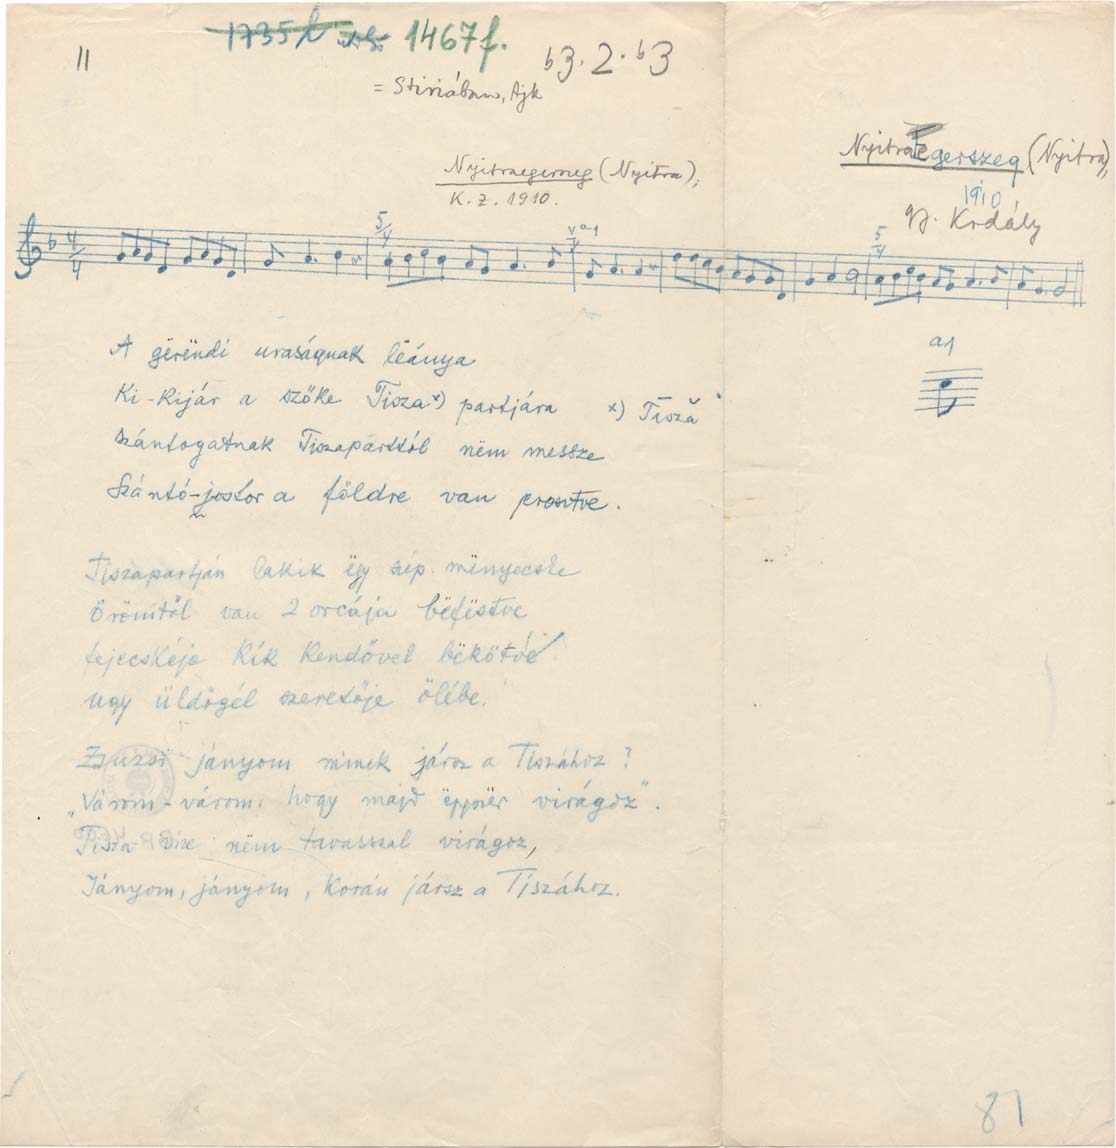 11
1735h 1467f.
b3. 2. b3
= Stiriában, Ajk
Nyitraegerszeg (Nyitra),
K. Z. 1910.
NyitraEgerszeg (Nyitra),
1910
gy. Kodály
4/4 5/4 4/4 a1 5/4
A gërëndi uraságnak lëánya
Ki-kijár a szőke Tisza x) partjára x) Tīsză
Szántogatnak Tiszaparttól nëm messze
Szántó-jostor a földre van
a1
Tiszapartján lakik ëgy szép mënyecske
örömtől van 2 orcája bëfëstve
fejecskéje kík kendővel bëkötvé
ugy üldögél szeretője ölébe.
Zsuzsi jányom minek jársz a Tiszához?
„Várom-várom, hogy majd ëppër virágoz".
Tisza vize nëm tavasszal virágoz,
Jányom, jányom, korán jársz a Tíszához.
81